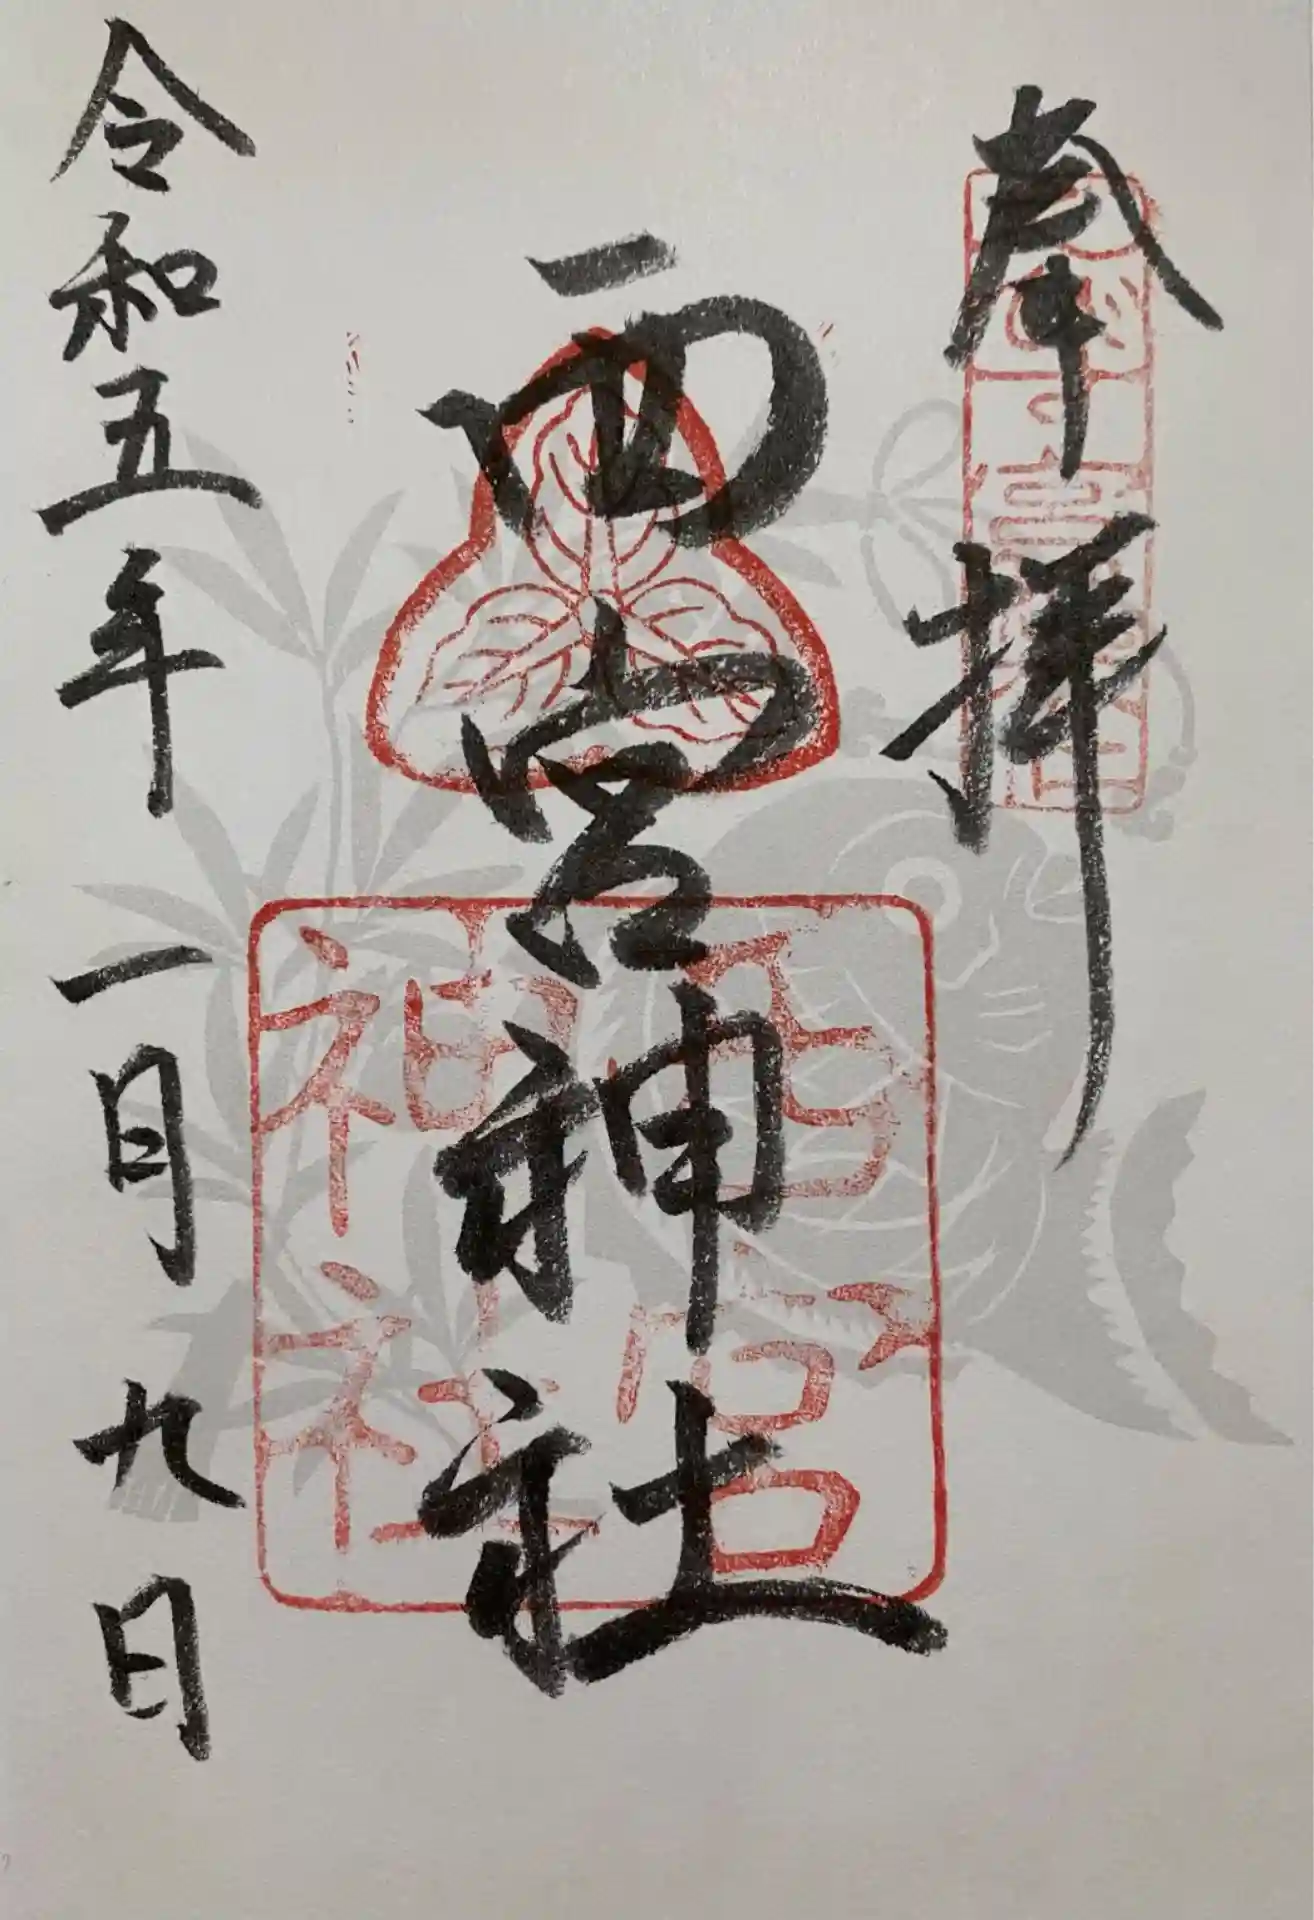 奉拝
西宮神社
西宮神社
令和五年一月九日